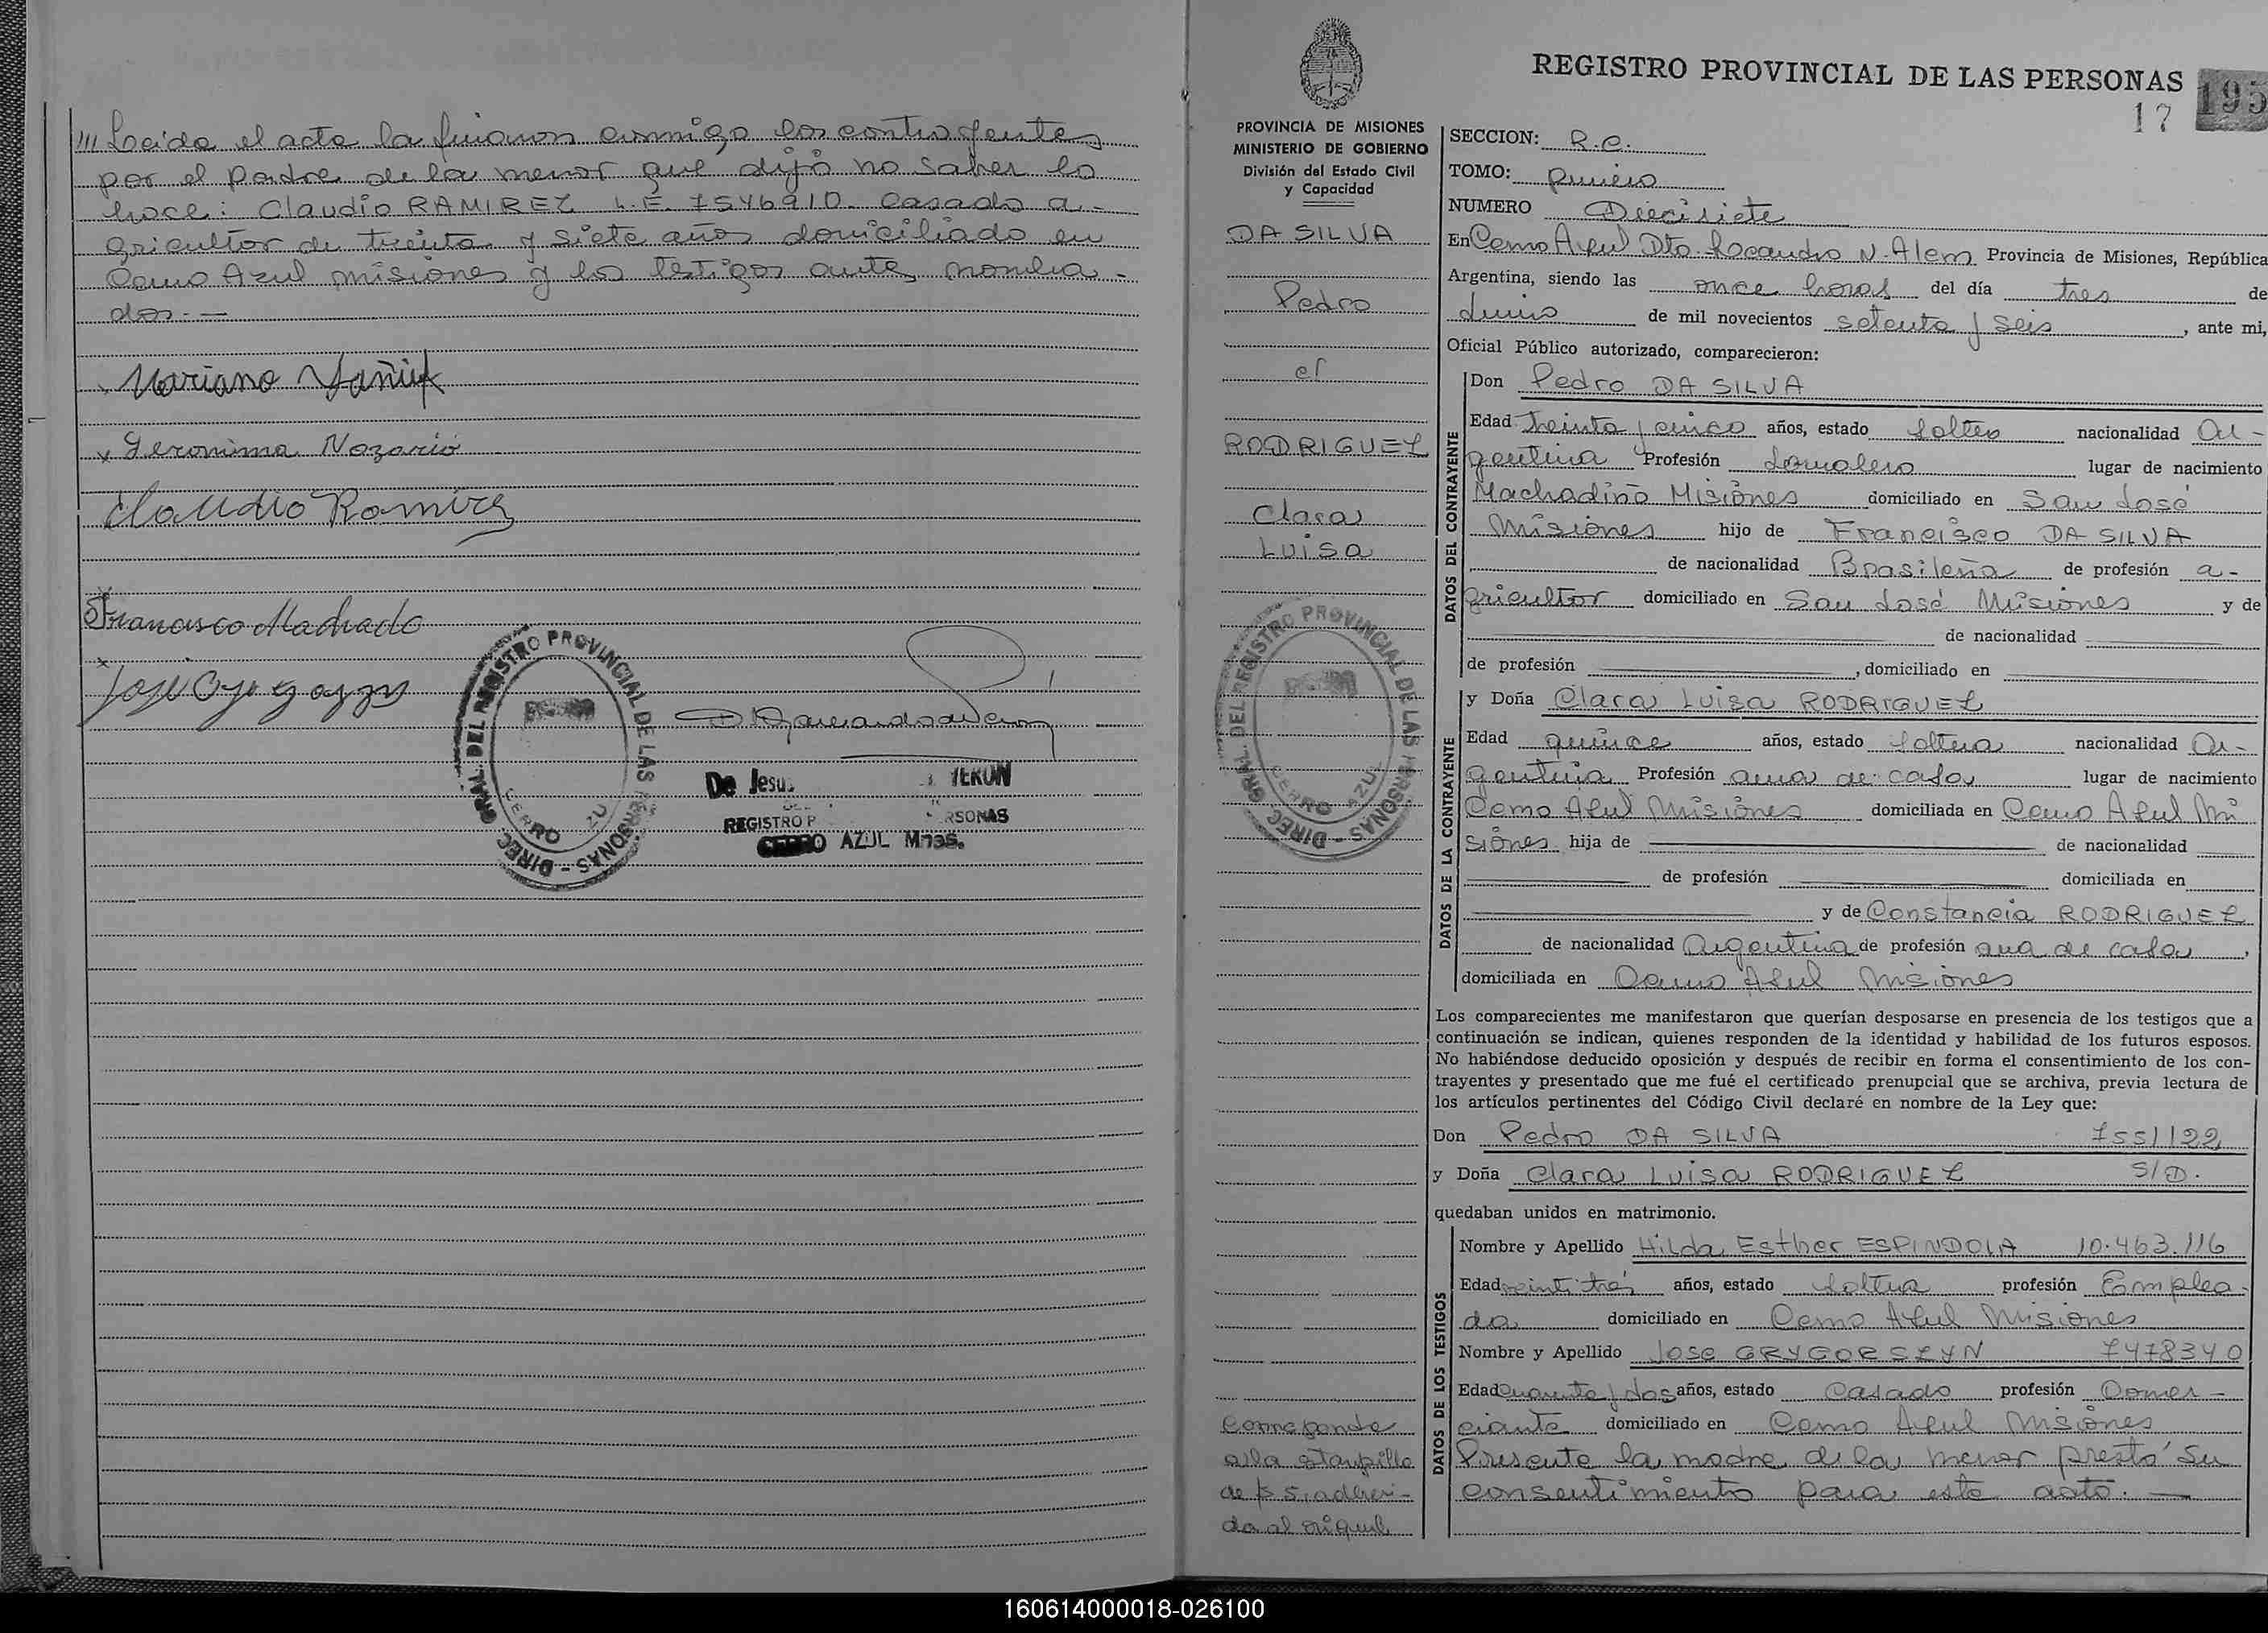 /// Leida el acta la firmaron conmigo los contrayentes
por el padre de la menor que dijo no saber lo
hace: Claudio RAMIREZ L.E. 7546910 casado a-
gricultor de treinta y siete años domiciliado en
Cerro Azul misiones y los testigos antes nombra-
dos.—
Mariano Yañuk
x Geronima Nozario
Claudio Ramirez
Francisco Machado
DIREC. GRAL. DEL REGISTRO PROVINCIAL DE LAS PERSONAS
CERRO AZUL
De Jesus
REGISTRO P RSONAS
CERRO AZUL Mnes.
REGISTRO PROVINCIAL DE LAS PERSONAS
195
17
PROVINCIA DE MISIONES
MINISTERIO DE GOBIERNO
División del Estado Civil
y Capacidad
DA SILVA
Pedro
c/
RODRIGUEZ
Clara
Luisa
DIREC. GRAL. DEL REGISTRO PROVINCIAL DE LAS PERSONAS
CERRO AZUL
Corresponde
a la estampilla
de $ 5, adheri-
da al original
SECCION: R.C.
TOMO: Primero
NUMERO Diecisiete
En Cerro Azul Dto. Leoandro N. Alem Provincia de Misiones, República
Argentina, siendo las once horas del día tres de
Junio de mil novecientos setenta y seis, ante mi,
Oficial Público autorizado, comparecieron:
DATOS DEL CONTRAYENTE
Don Pedro DA SILVA
Edad Treinta y cinco años, estado soltero nacionalidad Ar-
gentina Profesión Jornalero lugar de nacimiento
Machadiño Misiones domiciliado en San José
Misiones hijo de Francisco DA SILVA
de nacionalidad Brasileña de profesión a-
gricultor domiciliado en San José Misiones y de
de nacionalidad
de profesión , domiciliado en
DATOS DE LA CONTRAYENTE
y Doña Clara Luisa RODRIGUEZ
Edad quince años, estado soltera nacionalidad Ar-
gentina Profesión ama de casa lugar de nacimiento
Cerro Azul Misiones domiciliada en Cerro Azul Mi
siones hija de de nacionalidad
de profesión domiciliada en
y de Constancia RODRIGUEZ
de nacionalidad Argentina de profesión ama de casa,
domiciliada en Cerro Azul Misiones
Los comparecientes me manifestaron que querían desposarse en presencia de los testigos que a
continuación se indican, quienes responden de la identidad y habilidad de los futuros esposos.
No habiéndose deducido oposición y después de recibir en forma el consentimiento de los con-
trayentes y presentado que me fué el certificado prenupcial que se archiva, previa lectura de
los artículos pertinentes del Código Civil declaré en nombre de la Ley que:
Don Pedro DA SILVA 7551122
y Doña Clara Luisa RODRIGUEZ S/D.
quedaban unidos en matrimonio.
DATOS DE LOS TESTIGOS
Nombre y Apellido Hilda Esther ESPINDOLA 10.463.116
Edad veintitrés años, estado soltera profesión Emplea-
da domiciliado en Cerro Azul Misiones
Nombre y Apellido Jose GRYGORSZYN 7478340
Edad cuarenta y dos años, estado casado profesión Comer-
ciante domiciliado en Cerro Azul Misiones
Presente la madre de la menor prestó su
consentimiento para este acto.—
160614000018-026100